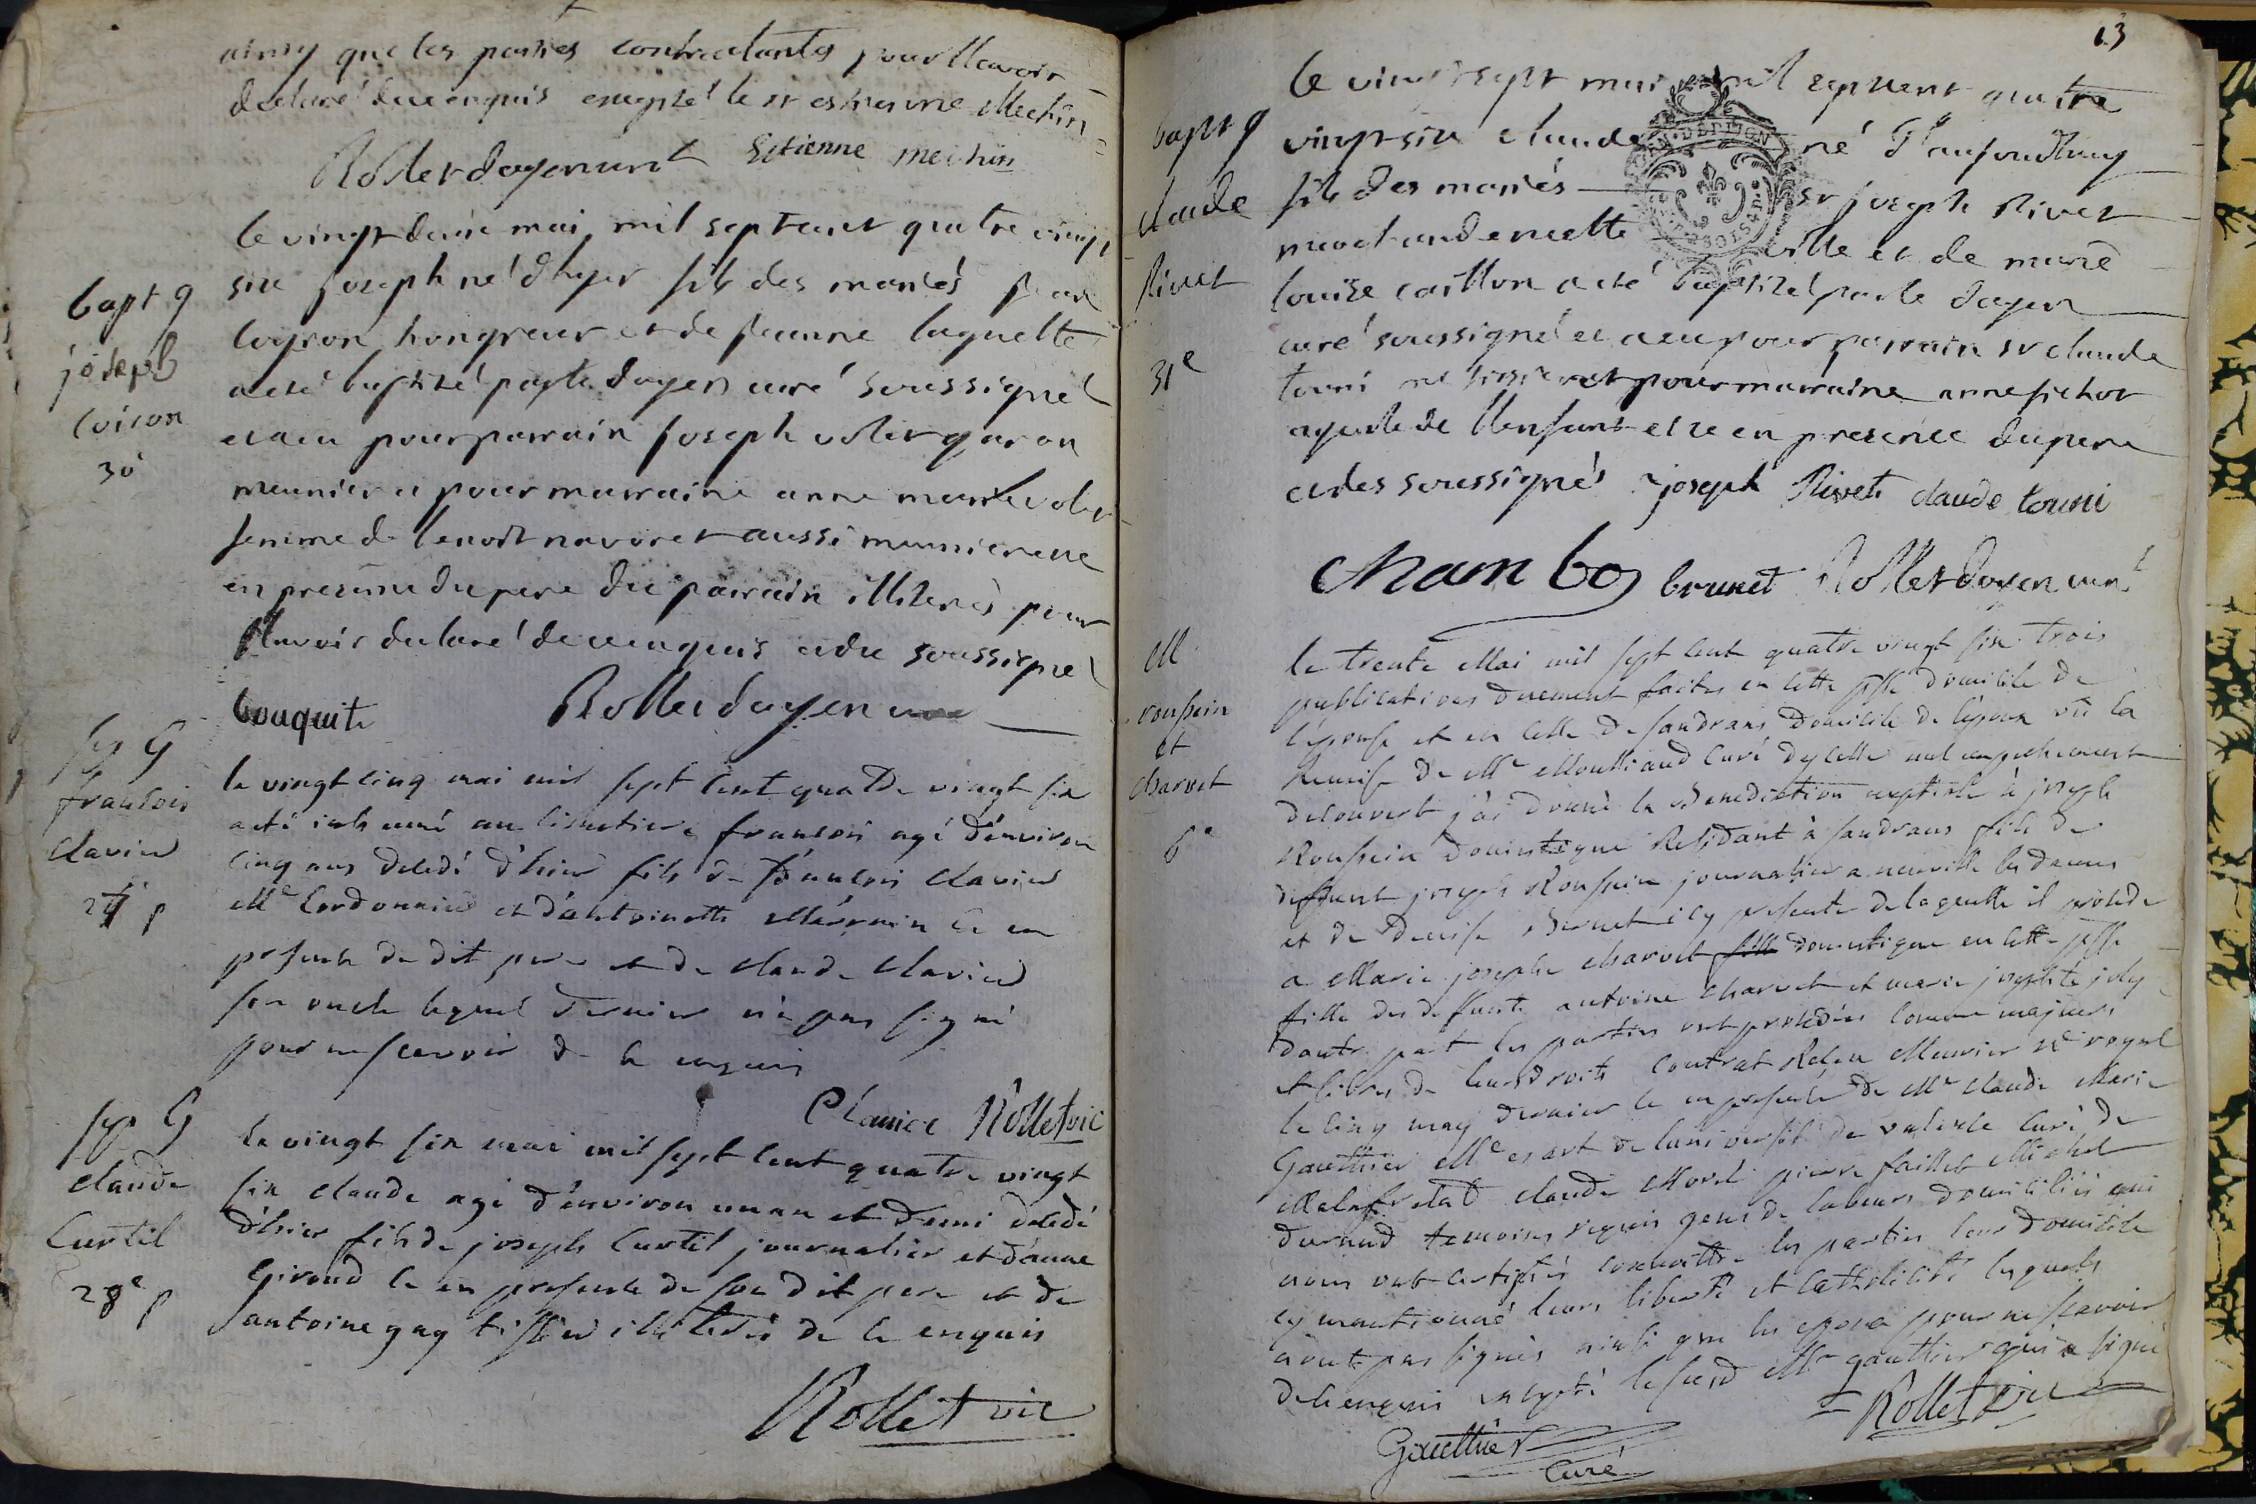 ainsy que les parties contractantes pour ne sçavoir
declaré de ce enquis excepté le sr estienne Mechin
Rollet doyen curé Ectienne mechin
le vingt deux mai mil sept cent quatre vingt
bapt g
joseph
Coiron
30
six joseph né d'hyer fils des mariés jean
coyron hongreur et de jeanne luquette
a eté baptizé par le doyen curé soussigné
et a eu pour parrain joseph volet garçon
meunier et pour marraine anne marie volet
femme de benoit navoret aussi meunier
en presence du pere du parrain illiterés pour
l'avoir declaré de ce enquis et du soussigné
bouquite Rollet doyen curé
sep G
francois
Clavier
27 p
le vingt cinq mai mil sept cent quatre vingt six
a eté inhumé au cimetiere francois agé d'environ
cinq ans decedé d'hier fils de francois Clavier
Me Cordonnier et d'antoinette ce en
presence de dit pere et de Claude Clavier
son oncle lequel dernier n'a pas signé
pour ne scavoir de ce enquis
Clavier Rollet vic
sep G
Claude
Curtil
28e p
Le vingt six mai mil sept cent quatre vingt
six Claude agé d'environ un an et demi decedé
d'hier fils de joseph Curtil journalier et d'anne
Giroud ce en presence de son dit pere et de
antoine gay tissier illiterés de ce enquis
Rollet vic
13
bapt g
claude
Rivet
31e
le vingt sept mai mil sept cent quatre
vingt six claude né d'aujourdhuy
fils des mariés sr joseph Rivet
marchand en cette ville et de marie
louise caillon a eté baptizé par le doyen
curé soussigné et a eu pour parrain sr claude
touni et pour marraine anne fichot
ayeule de l'enfant et ce en presence du pere
et des soussignés joseph Rivet claude touni
Chambo brunet Rollet doyen curé
M
roussein
et
Charvet
6e
le trente Mai mil sept cent quatre vingt six trois
publications duement faites en cette psse domicile de
l'epouse et en celle de sandrans domicile de l'epoux vû la
Remise de Mr Moulliaud Curé dycelle nul empechement
decouvert j'ai donné la Benediction nuptiale à joseph
Roussein domestique Residant à sandrans fils de
deffunt joseph Roussein journalier a neuville les dames
et de Denise icy presente de laquelle il procede
a Marie josephe Charvet fille domestique en cette psse
fille des deffunts antoine Charvet et marie josephte joly
dautre part les parties ont procedées comme majeurs
et libres de leurs droits Contrat Reçeu Meunier Nre royal
le cinq may dernier ce en presence de Mr Claude Marie
Gauthier Me es art de l'université de valence Curé de
Claude Morel pierre faillet Michel
durand temoins requis gens de labeurs domiciliés qui
nous ont certifiés connoitre les parties leur domicile
cy mentionné leurs liberté et Catholicité lesquels
n'ont pas signés ainsi que les epoux pour ne scavoir
de ce enquis excepté le susd Mr gauthier qui a signé
Rollet vic
Gauthier
Curé